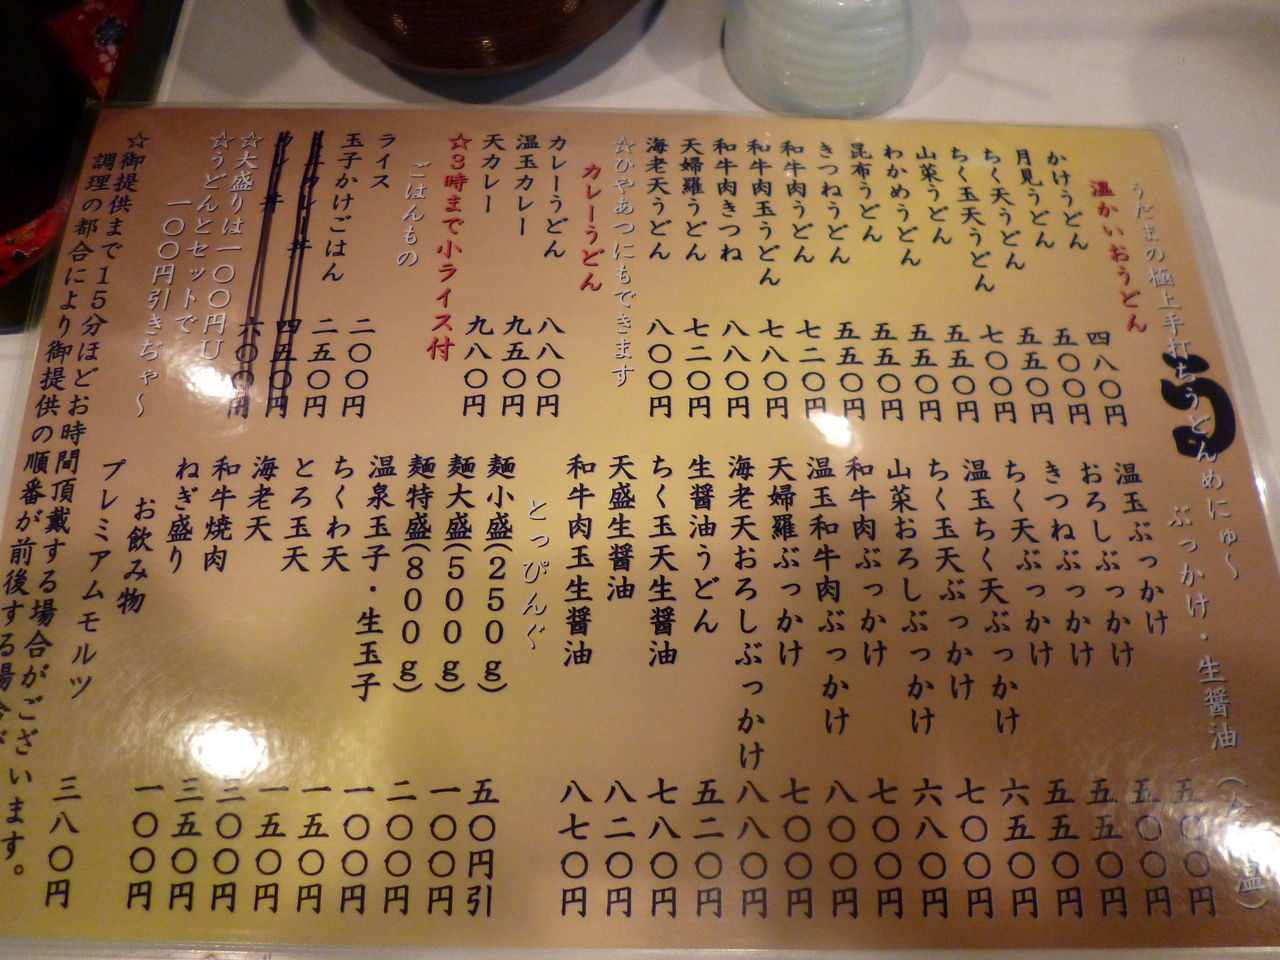 うだまの極上手打ちうどんめにゅ〜
温かいおうどん
かけうどん 四八〇円
月見うどん 五〇〇円
ちく天うどん 五五〇円
ちく玉天うどん 七〇〇円
山菜うどん 五五〇円
わかめうどん 五五〇円
昆布うどん 五五〇円
きつねうどん 五五〇円
和牛肉うどん 七二〇円
和牛肉玉うどん 七八〇円
和牛肉きつね 八八〇円
天婦羅うどん 七二〇円
海老天うどん 八〇〇円
☆ひやあつにもできます
カレーうどん
カレーうどん 八八〇円
温玉カレー 九五〇円
天カレー 九八〇円
☆3時まで小ライス付
ごはんもの
ライス 二〇〇円
玉子かけごはん 二五〇円
カレー丼 四五〇円
カレー丼 六〇〇円
☆大盛りは一〇〇円U
☆うどんとセットで
一〇〇円引きぢゃ〜
ぶっかけ・生醤油
温玉ぶっかけ 五〇〇円
おろしぶっかけ 五〇〇円
きつねぶっかけ 五五〇円
ちく天ぶっかけ 五五〇円
温玉ちく天ぶっかけ 六五〇円
ちく玉天ぶっかけ 七〇〇円
山菜おろしぶっかけ 六八〇円
和牛肉ぶっかけ 七〇〇円
温玉和牛肉ぶっかけ 八〇〇円
天婦羅ぶっかけ 七〇〇円
海老天おろしぶっかけ 八八〇円
生醤油うどん 五二〇円
ちく玉天生醤油 七八〇円
天盛生醤油 八二〇円
和牛肉玉生醤油 八七〇円
とっぴんぐ
麺小盛(250g) 五〇円引
麺大盛(500g) 一〇〇円
麺特盛(800g) 二〇〇円
温泉玉子・生玉子 一〇〇円
ちくわ天 一五〇円
とろ玉天 一五〇円
海老天 三〇〇円
和牛焼肉 三五〇円
ねぎ盛り 一〇〇円
お飲み物
プレミアムモルツ 三八〇円
☆御提供まで15分ほどお時間頂戴する場合がございます。
調理の都合により御提供の順番が前後する場合が